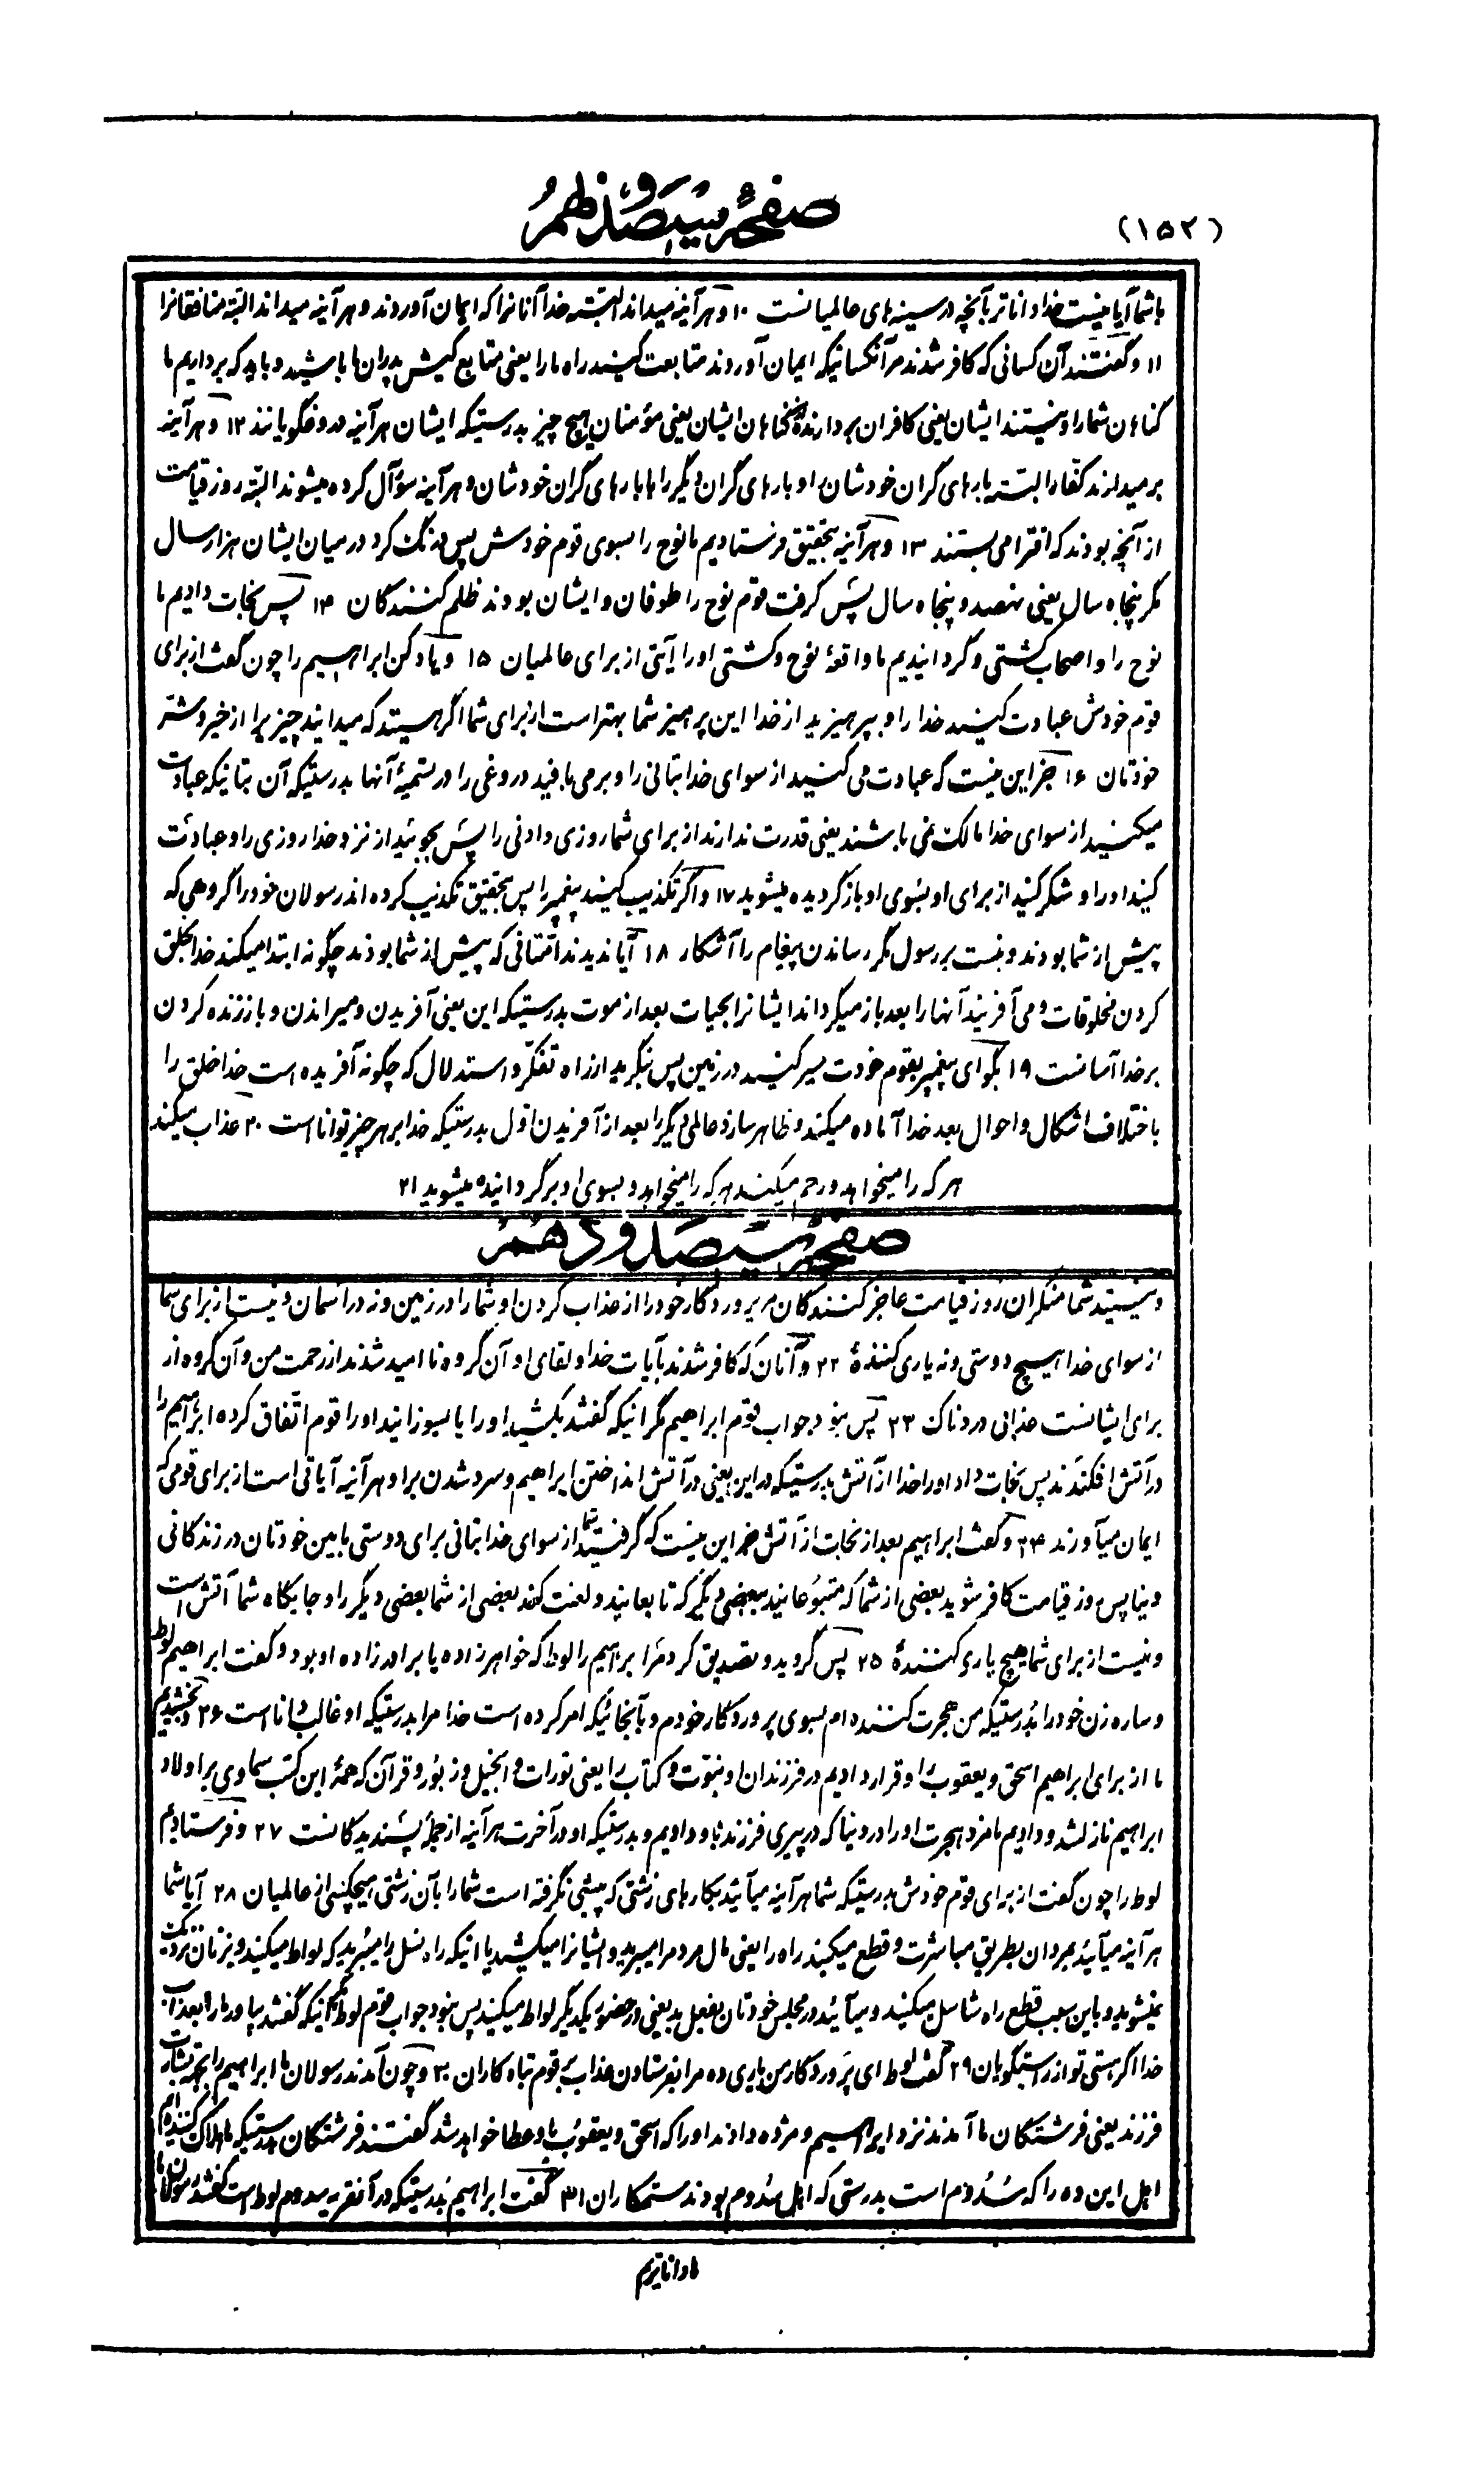 (۱۵۲)
صفحهٔ سیصد و نهم
باشما آیا نیست خدا داناتر بآنچه در سینه‌های عالمیانست ۱۰ و هرآینه میداند البته خدا آنانرا که ایمان آوردند و هرآینه میداند البته منافقانرا
۱۱ و گفتند آن کسانی که کافر شدند مر آنکسانیکه ایمان آوردند متابعت کنید راه ما را یعنی متابع کیش پدران ما باشید و باید که برداریم ما
گناهان شما را و نیستند ایشان یعنی کافران بردارندهٔ از گناهان ایشان یعنی مؤمنان هیچ چیز بدرستیکه ایشان هرآینه دروغگویانند ۱۲ و هرآینه
برمیدارند کفار البته بارهای گران خودشان را و بارهای گران دیگر را با بارهای گران خودشان و هرآینه سؤآل کرده میشوند البته روز قیامت
از آنچه بودند که افترا می‌بستند ۱۳ و هرآینه بتحقیق فرستادیم ما نوح را بسوی قوم خودش پس درنگ کرد در میان ایشان هزار سال
مگر پنجاه سال یعنی نهصد و پنجاه سال پس گرفت قوم نوح را طوفان و ایشان بودند ظلم کنندگان ۱۴ پس نجات دادیم ما
نوح را و اصحاب کشتی و گردانیدیم ما واقعهٔ نوح و کشتی او را آیتی از برای عالمیان ۱۵ و یاد کن ابراهیم را چون گفت از برای
قوم خودش عبادت کنید خدا را و بپرهیزید از خدا این پرهیز شما بهتر است از برای شما اگر هستید که میدانید چیزیرا از خیر و شر
خودتان ۱۶ جز این نیست که عبادت می‌کنید از سوای خدا بتانی را و برمی‌بافید دروغی را در تسمیهٔ آنها بدرستیکه آن بتانیکه عبادت
میکنید از سوای خدا مالک نمی‌باشند یعنی قدرت ندارند از برای شما روزی دادنی را پس بجوئید از نزد خدا روزی را و عبادت
کنید او را و شکر کنید از برای او بسوی او بازگردیده میشوید ۱۷ و اگر تکذیب کنید پیغمبر را پس بتحقیق تکذیب کرده‌اند رسولان خود را گروهی که
پیش از شما بودند و نیست بر رسول مگر رساندن پیغام را آشکار ۱۸ آیا ندیدند امّتانی که پیش از شما بودند چگونه ابتدا میکند خدا بخلق
کردن مخلوقات و می‌آفریند آنها را بعد باز میگرداند ایشانرا بحیات بعد از موت بدرستیکه این یعنی آفریدن و میراندن و باز زنده کردن
بر خدا آسانست ۱۹ بگو ای پیغمبر بقوم خودت سیر کنید در زمین پس بنگرید از راه تفکّر و استدلال که چگونه آفریده است خدا خلق را
باختلاف اشکال و احوال بعد خدا آماده میکند و ظاهر سازد عالم دیگر را بعد از آفریدن اوّل بدرستیکه خدا بر هر چیز تواناست ۲۰ عذاب میکند
هر که را میخواهد و رحم میکند هر که را میخواهد و بسوی او برگردانیده میشوید ۲۱
صفحهٔ سیصد و دهم
و نیستید شما منکران روز قیامت عاجز کنندگان مر پروردگار خود را از عذاب کردن او شما را در زمین و نه در آسمان و نیست از برای شما
از سوای خدا هیچ دوستی و نه یاری کنندهٔ ۲۲ و آنان که کافر شدند بآیات خدا و لقای او آن گروه ناامید شدند از رحمت من و آن گروه از
برای ایشانست عذابی دردناک ۲۳ پس نبود جواب قوم ابراهیم مگر انیکه گفتند بکشید او را یا بسوزانید او را قوم اتّفاق کرده ابراهیم را
در آتش افکندند پس نجات داد او را خدا از آتش بدرستیکه در این یعنی در آتش انداختن ابراهیم و سرد شدن بر او هرآینه آیاتی است از برای قومی که
ایمان میآورند ۲۴ و گفت ابراهیم بعد از نجات از آتش جز این نیست که گرفتید شما از سوای خدا بتانی برای دوستی مابین خودتان در زندگانی
دنیا پس روز قیامت کافر شوید بعضی از شما که متبوعانید ببعضی دیگر که تابعانید و لعنت کند بعضی از شما بعضی دیگر را و جایگاه شما آتش است
و نیست از برای شما هیچ یاری کنندهٔ ۲۵ پس گروید و تصدیق کرد مر ابراهیم را لوط که خواهرزاده یا برادرزاده او بود و گفت ابراهیم لوط
و ساره زن خود را بدرستیکه من هجرت کننده‌ام بسوی پروردگار خودم و بآنجائیکه امر کرده است خدا مرا بدرستیکه او غالب و داناست ۲۶ و بخشیدیم
ما از برای ابراهیم اسحق و یعقوب را و قرار دادیم در فرزندان او نبوّت و کتاب را یعنی تورات و انجیل و زبور و قرآن که همهٔ این کتب سماوی بر اولاد
ابراهیم نازلشد و دادیم ما مزد هجرت او را در دنیا که در پیری فرزند باو دادیم و بدرستیکه او در آخرت هرآینه از جملهٔ پسندیدگانست ۲۷ و فرستادیم
لوط را چون گفت از برای قوم خودش بدرستیکه شما هرآینه میآئید بکارهای زشتی که پیشی نگرفته است شما را بآن زشتی هیچکس از عالمیان ۲۸ آیا شما
هرآینه میآئید بمردان بطریق مباشرت و قطع میکنید راه را یعنی مال مردم را میبرید و ایشانرا میکشید یا انیکه راه نسل را میبرید که لواط میکنید و بزنان نزدیک
نمیشوید و باین سبب قطع راه تناسل میکنید و میآئید در مجلس خودتان بفعل بد یعنی در حضور یکدیگر لواط میکنید پس نبود جواب قوم لوط مگر انیکه گفتند بیاور ما را بعذاب
خدا اگر هستی تو از راستگویان ۲۹ گفت لوط ای پروردگار من یاری ده مرا بفرستادن عذاب بر قوم تباه کاران ۳۰ و چون آمدند رسولان ما ابراهیم را بجهة بشارت
فرزند یعنی فرشتگان ما آمدند نزد ابراهیم و مژده دادند او را که اسحق و یعقوب باو عطا خواهد شد گفتند فرشتگان بدرستیکه ما هلاک کننده‌ایم
اهل این ده را که سُدُوم است بدرستی که اهل سدوم بودند ستمکاران ۳۱ گفت ابراهیم بدرستیکه در آنقریه سدوم لوط است گفتند رسولان ما
ما داناتریم